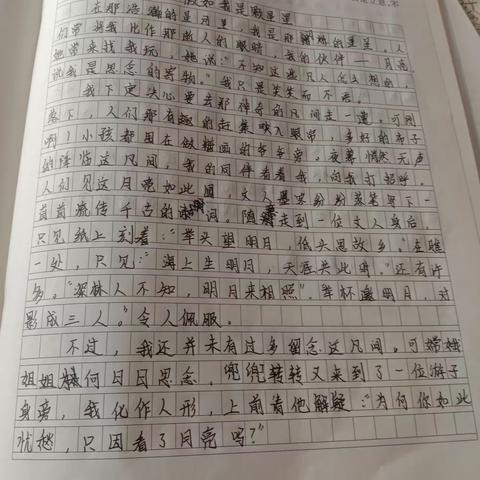 假如我是颗星星
在那浩瀚的星河里，我是那璀璨的星星。人
们常将我比作那故人的眼睛，我的伙伴——月亮
她常来找我玩，她说："不知这些凡人怎么想的，
说我是思念的寄物。"我只是笑笑而不语。
我下定决心要去那神奇的凡间走一遭。可刚
落下，人们那有趣的赶集映入眼帘，多好的布子
啊！小孩都围在做糖画的爷爷旁。夜幕悄然无声
的降临这凡间，我的同伴看着我，向我打招呼。
人们见这月亮如此圆，文人墨客纷纷落笔写下一
首首流传千古的诗词。随着走到一位文人身后，
只见纸上刻着："举头望明月，低头思故乡。"在瞧
一处，只见："海上生明月，天涯共此时。"还有许
多。"深林人不知，明月来相照"．举杯邀明月，对
影成三人。"令人佩服。
不过，我还并未有过多留念这凡间。可嫦娥
姐姐为何日日思念。兜兜转转又来到了一位游子
身旁，我化作人形，上前青他解疑："为何你如此
忧愁，只因看了月亮吗？"